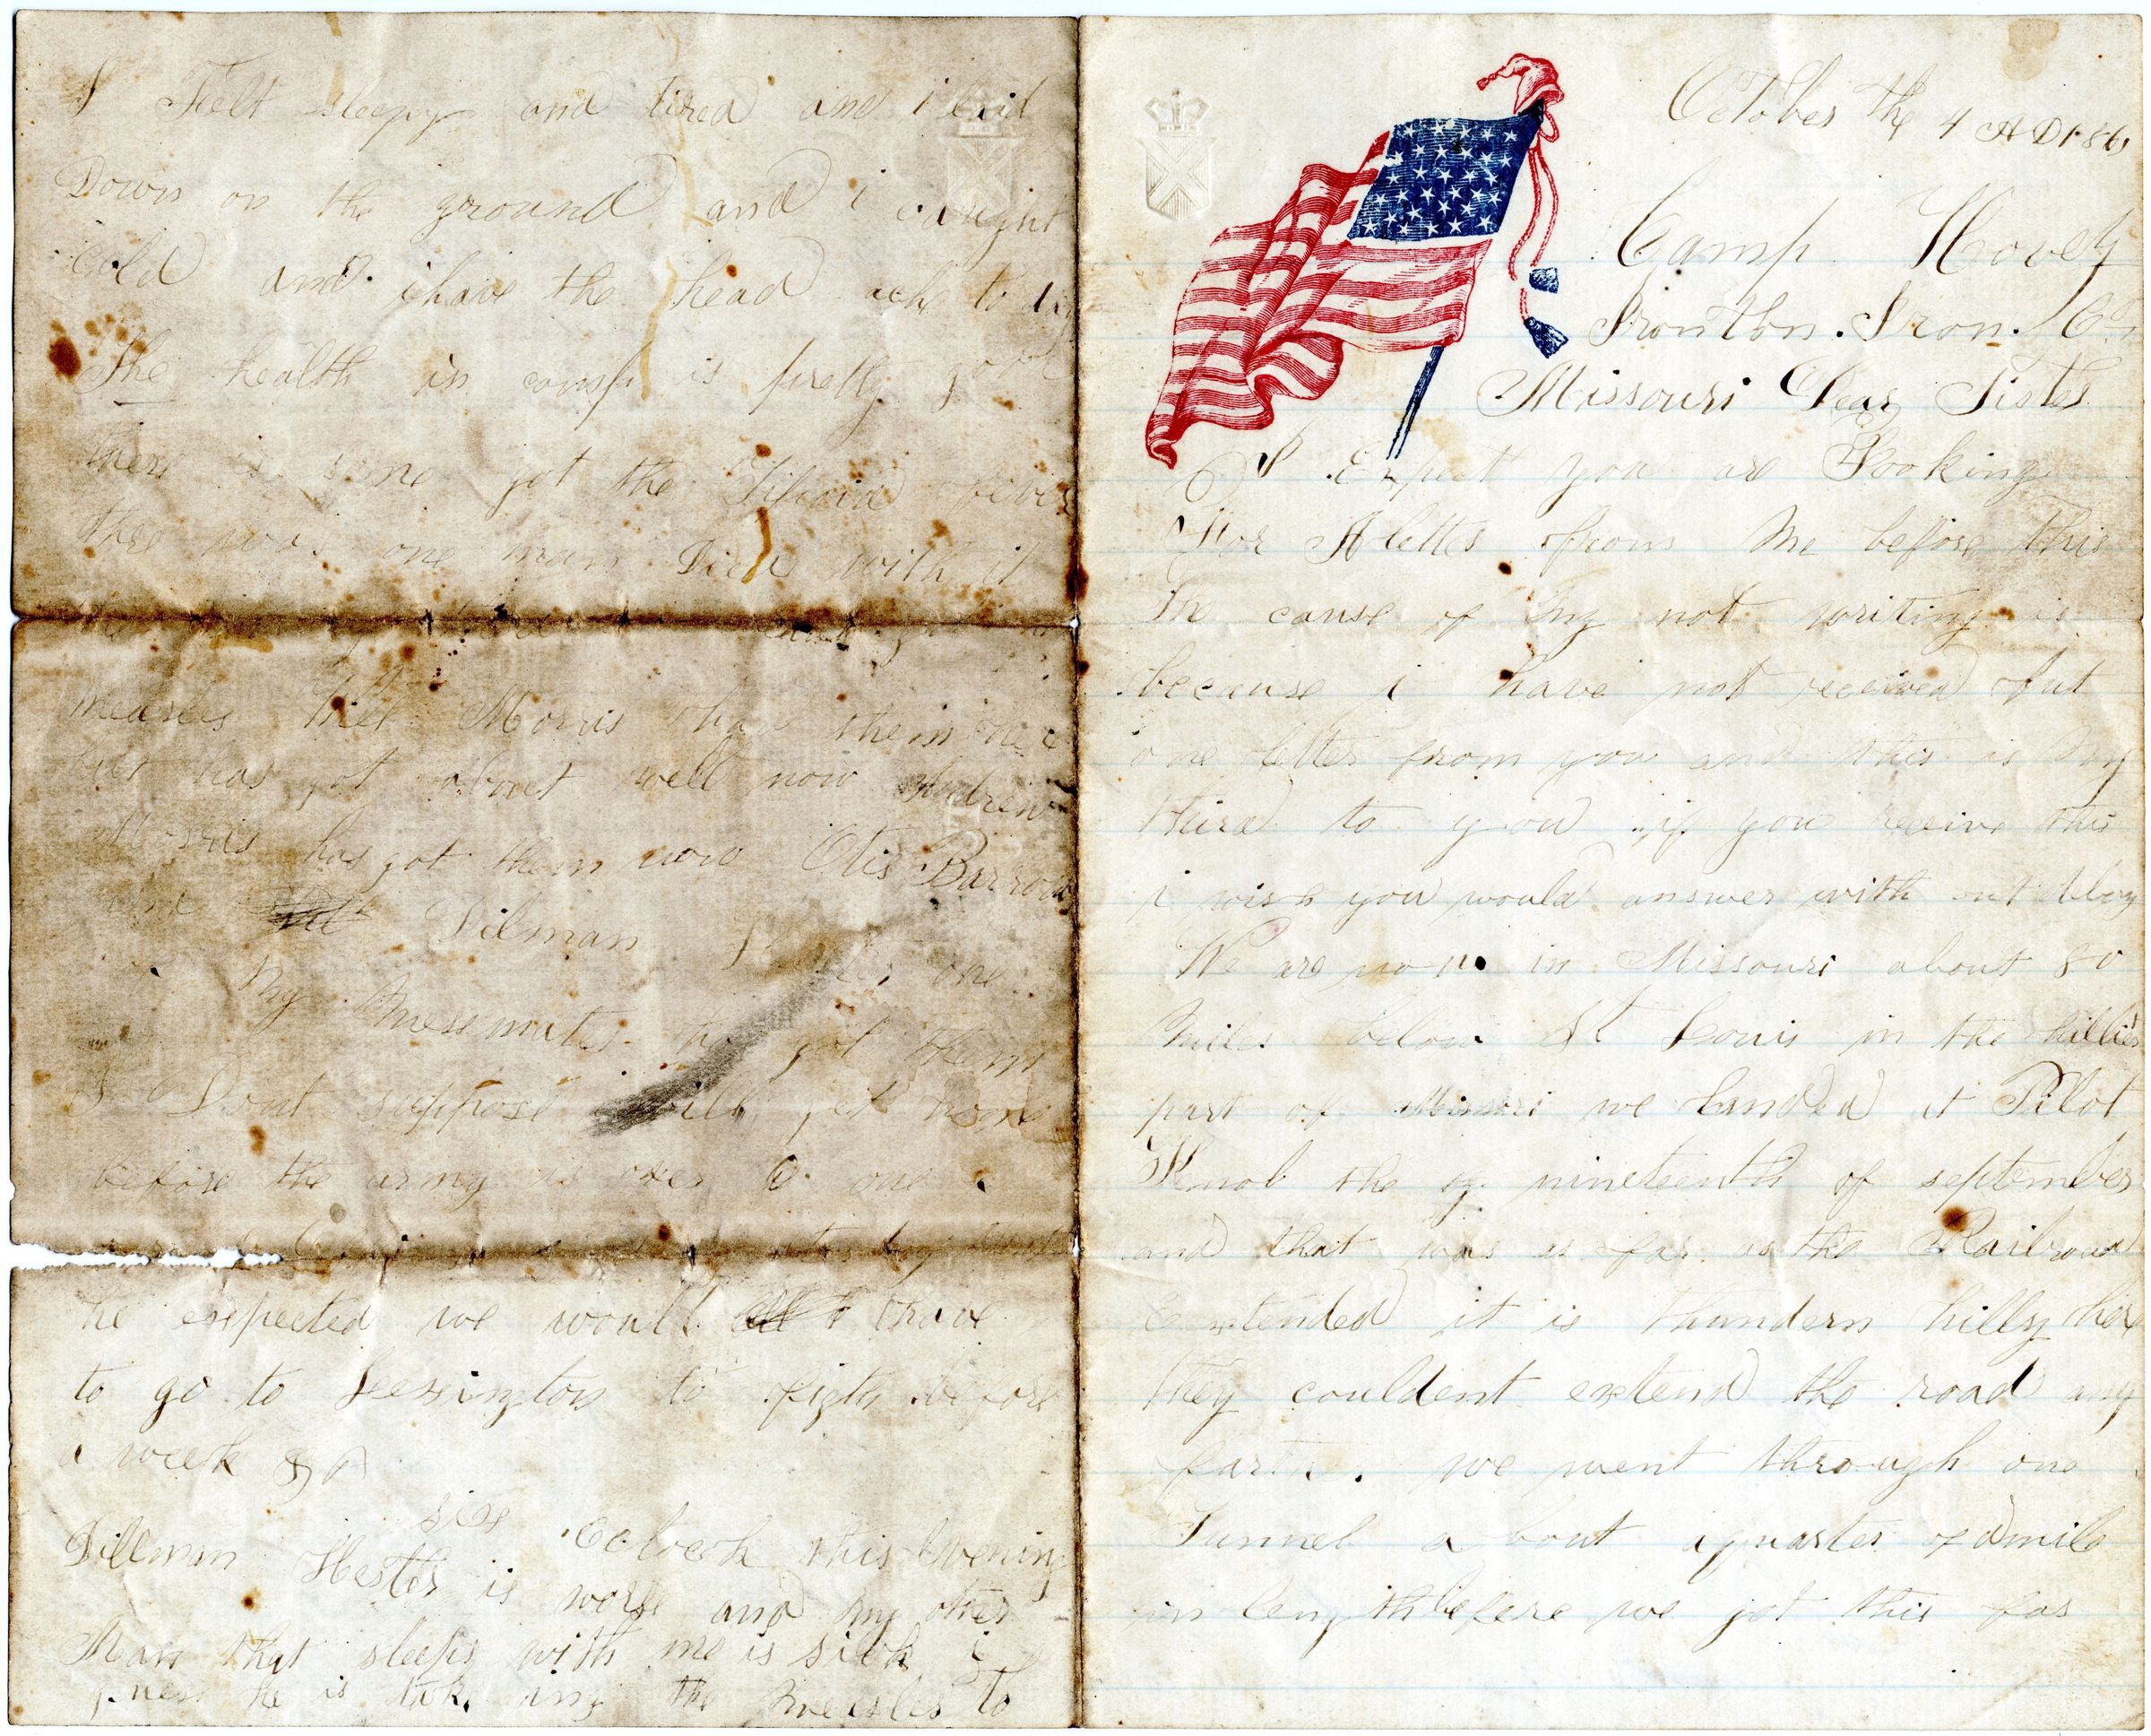 October the 4 AD 1861
Camp Hovey
Ironton. Iron. Co.
Missouri Dear Sister
I Expect you are Looking
For A letter from Me before this
The cause of my not writing is
because i have not received but
one letter from you and this is my
third to you if you receive this
i wish you would answer with out
We are now in Missouri about 80
Miles below St Louis in the hilliest
part of Missouri we Landed at Pilot
Knob the nineteenth of september
and that was as far as the Railroad
Extended it is thundern hilly here
They couldent extend the road any
we went through one
Tunnel a bout a quarter of a mile
in length before we got this far
I Felt sleepy and tired and i laid
Down on the ground and i caught
cold and i have the head ache to day
The health in camp is pretty good
there is some got the Tifoid fever
there was one man Died with it
measles Morris had them
but has got about well now Andrew
Morris has got them now Otis Barrow
and Dilman one
My Messmates got them
I Dont suppose i will get home
before the army is over
he expected we would have
to go to Lexington to figth before
a week
six Oclock this Evening
Dillman Hester is worse and my other
Man that sleeps with me is sick i
guess he is take ing the measles to